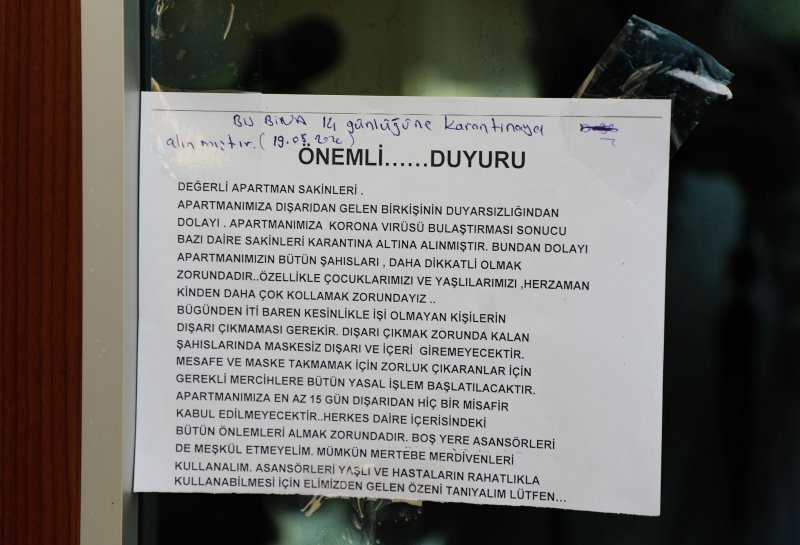 BU BiNA 14 günlüğüne karantinaya
alınmıştır. (19.08.2020)
ÖNEMLİ......DUYURU
DEĞERLİ APARTMAN SAKİNLERİ .
APARTMANIMIZA DIŞARIDAN GELEN BİRKİŞİNİN DUYARSIZLIĞINDAN
DOLAYI . APARTMANIMIZA KORONA VİRÜSÜ BULAŞTIRMASI SONUCU
BAZI DAİRE SAKİNLERİ KARANTINA ALTINA ALINMIŞTIR. BUNDAN DOLAYI
APARTMANIMIZIN BÜTÜN ŞAHISLARI , DAHA DİKKATLİ OLMAK
ZORUNDADIR..ÖZELLİKLE ÇOCUKLARIMIZI VE YAŞLILARIMIZI ,HERZAMAN
KİNDEN DAHA ÇOK KOLLAMAK ZORUNDAYIZ ..
BÜGÜNDEN İTİ BAREN KESİNLİKLE İŞİ OLMAYAN KİŞİLERİN
DIŞARI ÇIKMAMASI GEREKİR. DIŞARI ÇIKMAK ZORUNDA KALAN
ŞAHISLARINDA MASKESİZ DIŞARI VE İÇERİ GİREMEYECEKTİR.
MESAFE VE MASKE TAKMAMAK İÇİN ZORLUK ÇIKARANLAR İÇİN
GEREKLİ MERCİHLERE BÜTÜN YASAL İŞLEM BAŞLATILACAKTIR.
APARTMANIMIZA EN AZ 15 GÜN DIŞARIDAN HİÇ BİR MİSAFİR
KABUL EDİLMEYECEKTİR..HERKES DAİRE İÇERİSİNDEKİ
BÜTÜN ÖNLEMLERİ ALMAK ZORUNDADIR. BOŞ YERE ASANSÖRLERİ
DE MEŞKÜL ETMEYELİM. MÜMKÜN MERTEBE MERDİVENLERİ
KULLANALIM. ASANSÖRLERİ YAŞLI VE HASTALARIN RAHATLIKLA
KULLANABİLMESİ İÇİN ELİMİZDEN GELEN ÖZENİ TANIYALIM LÜTFEN...